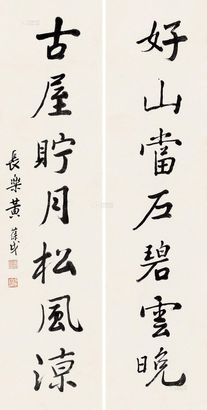 好山當石碧雲晚
古屋貯月松風涼
長樂黃葆戉